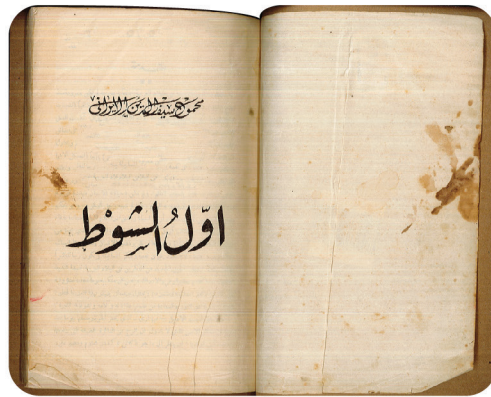 محمود سيف الدين الإيراني
اوّل الشوْط